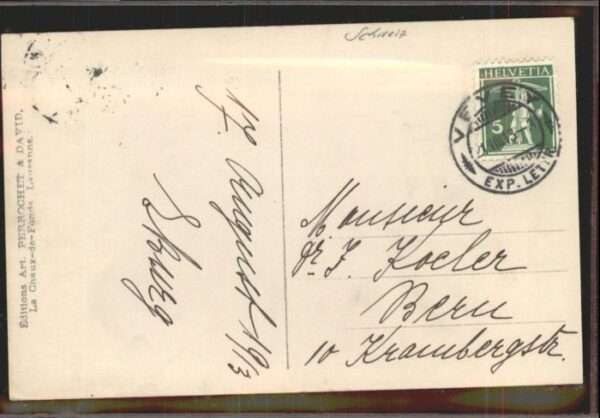 Schweiz
HELVETIA
5
VEVEY
EXP. LET.
Éditions Art. PERROCHET & DAVID,
La Chaux-de-Fonds Lausanne
17. August 1913
Monsieur
Dr. J. Kocler
Bern
10 Krambergstr.